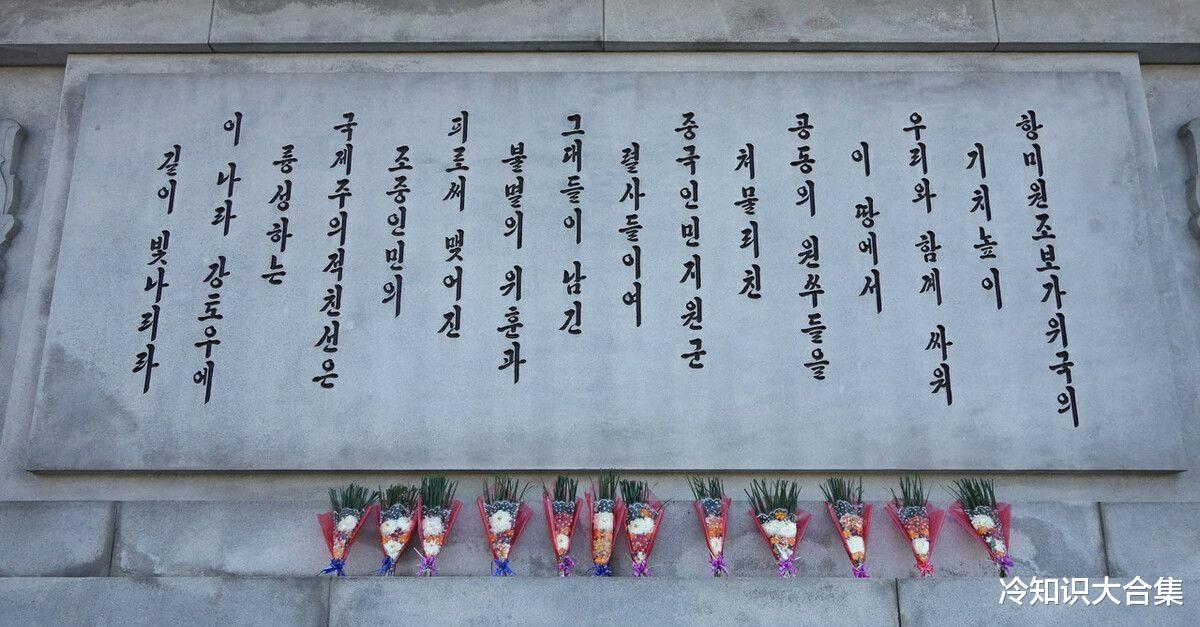 항미원조보가위국의
기치높이
우리와 함께 싸워
이 땅에서
공동의 원쑤들을
쳐물리친
중국인민지원군
렬사들이여
그대들이 남긴
불멸의 위훈과
피로써 맺어진
조중인민의
국제주의적친선은
륭성하는
이 나라 강토우에
길이 빛나리라
冷知识大合集